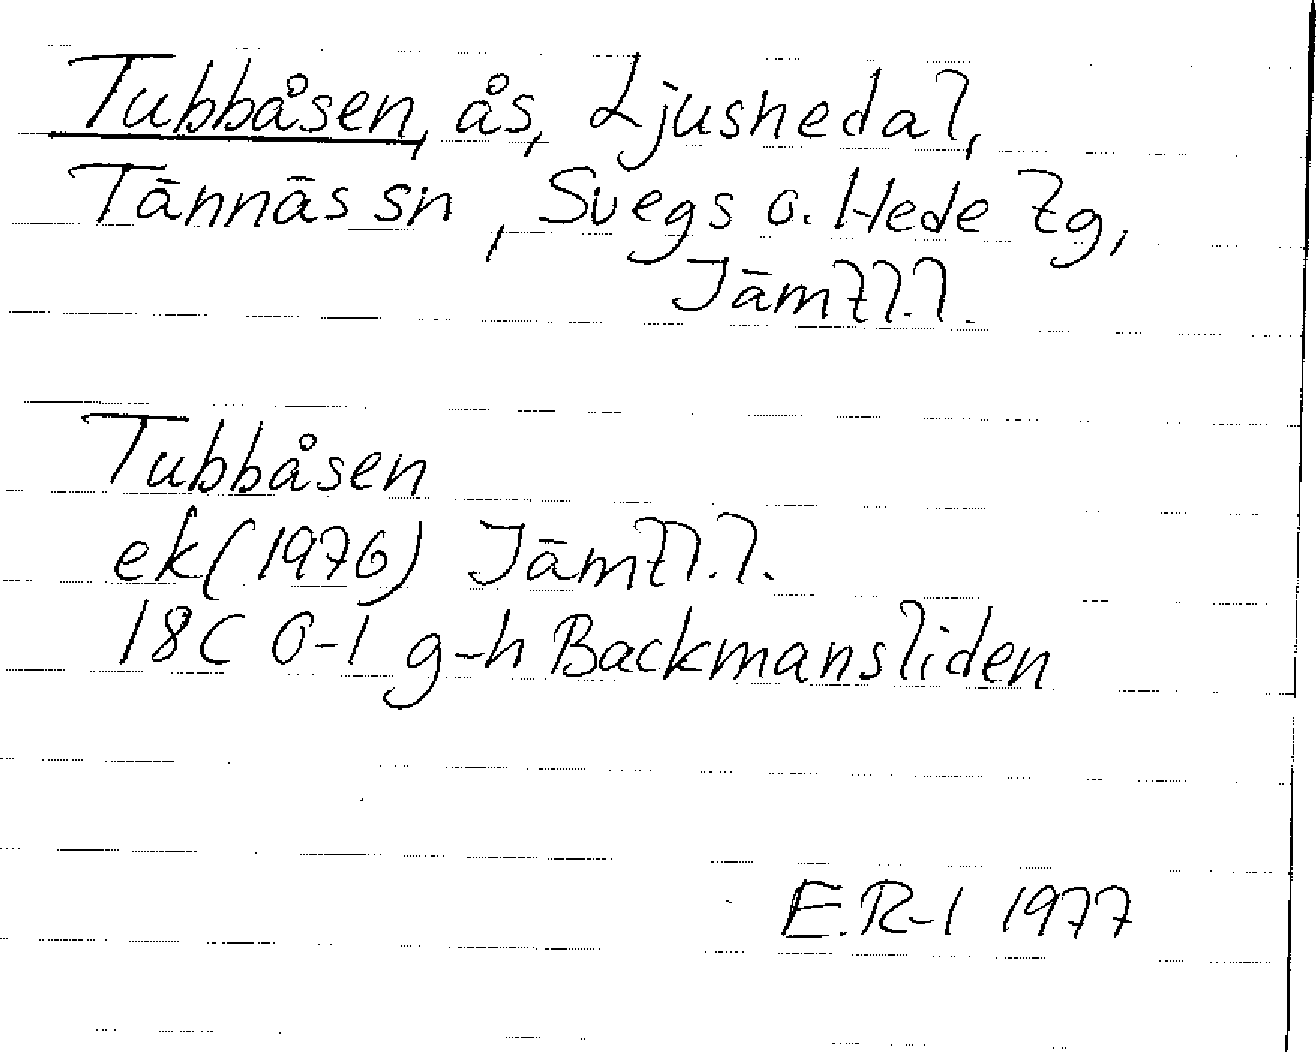 Tubbåsen, ås, Ljusnedal,
Tännäs sn, Svegs o. Hede tg,
Jämtl.l.
Tubbåsen
ek(1976) Jämtl.l.
18C 0-1 g-h Backmansliden
E.R-l 1977